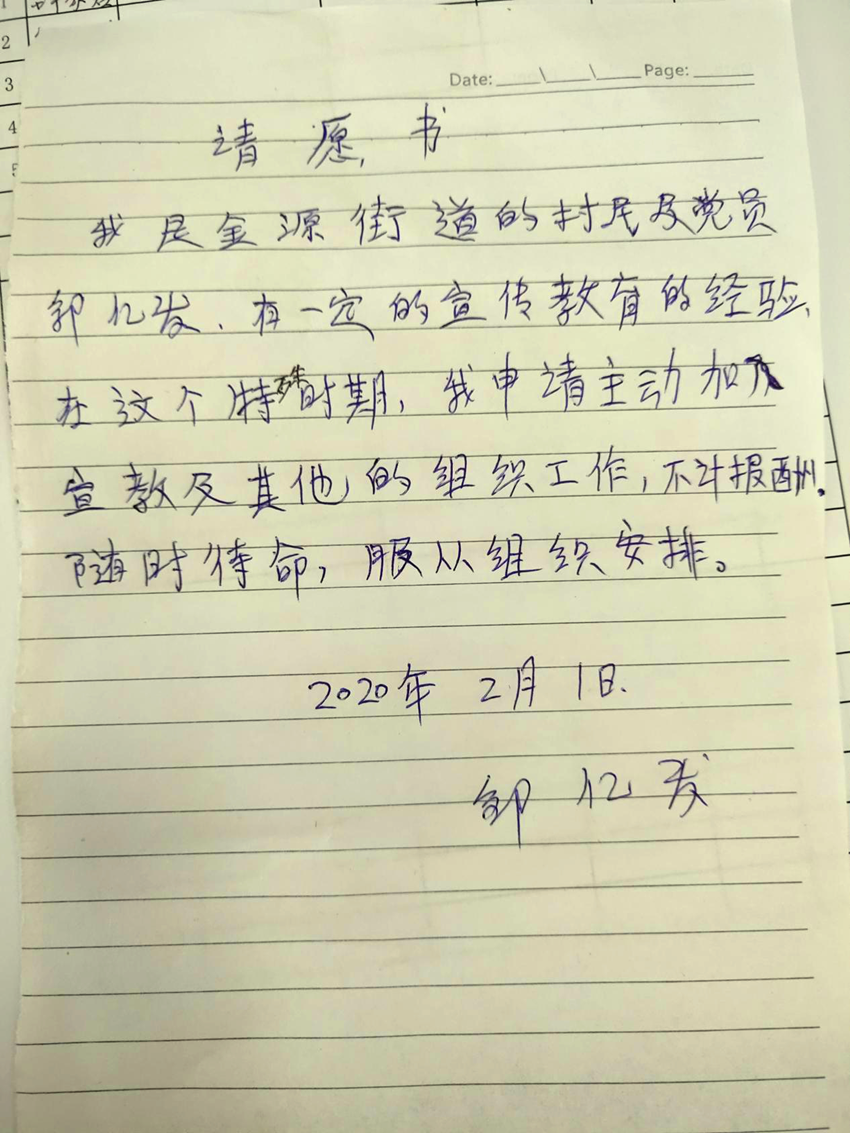 1
2
3
4
5
Date: ____\____\____ Page: ______
请愿书
我是金源街道的村民及党员
邹亿发.有一定的宣传教育的经验,
在这个特殊时期,我申请主动加入
宣教及其他的组织工作,不计报酬。
随时待命,服从组织安排。
2020年 2月 1日.
邹亿发